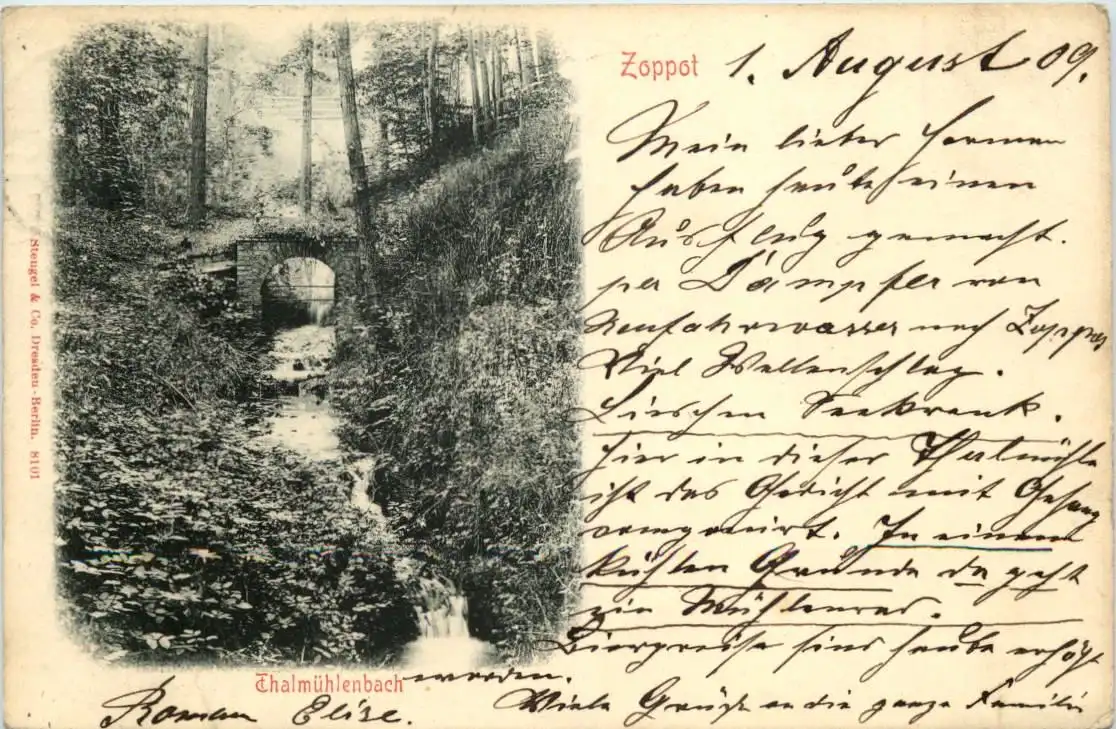 Zoppot 1. August 09.
Mein lieber Herman
haben heute einen
Ausflug gemacht.
per Dampfer von
Neufahrwasser nach Zoppot
Viel Wellenschlag.
Lieschen Seekrank.
Hier in dieser Thalmühle
ist das Gedicht mit Gesang
componirt. In einem
kühlen Grunde da geht
ein Mühlenrad.
Bierpreise sind heute erhöht
worden.
Viele Grüße an die ganze Familie
Elise.
Thalmühlenbach
Stengel & Co., Dresden-Berlin. 8101